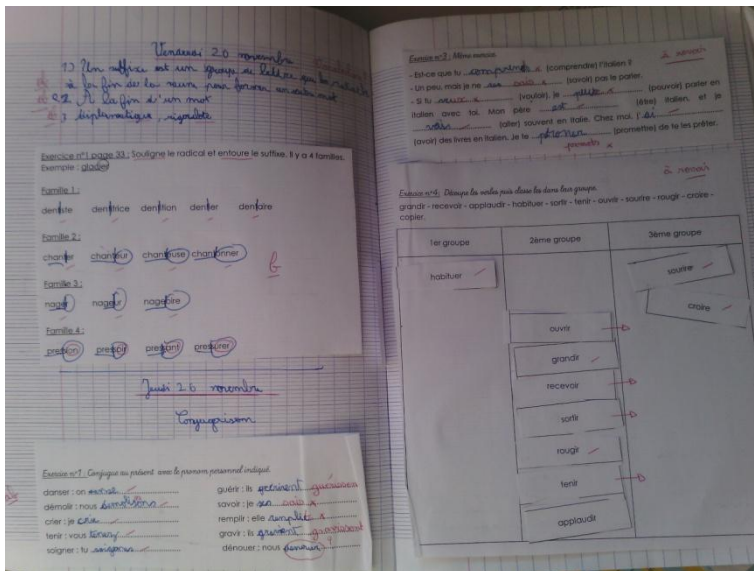 Vendredi 20 novembre
1) Un suffixe est un groupe de lettre qui
à la fin de la pour former un mot
2 À la fin d'un mot
3 diplomatique, rigolote
Exercice n°1 page 33 : Souligne le radical et entoure le suffixe. Il y a 4 familles.
Exemple : glacier
Famille 1 :
dentiste dentrice dentition dentier dentaire
Famille 2 :
chanter chanteur chanteuse chantonner
b
Famille 3 :
nager nageur nageoire
Famille 4 :
pression pressoir pressant pressurer
Jeudi 26 novembre
Conjugaison
Exercice n°1 : Conjugue au présent avec le pronom personnel indiqué.
danser : on
démolir : nous démolissons
crier : je crie
tenir : vous tenez
soigner : tu soignes
guérir : ils guérissent
savoir : je sais
remplir : elle remplit
gravir : ils gravissent
dénouer : nous
Exercice n°3 : Même exercice. à revoir
- Est-ce que tu comprends (comprendre) l'italien ?
- Un peu, mais je ne sais (savoir) pas le parler.
- Si tu veux (vouloir), je (pouvoir) parler en
italien avec toi. Mon père est (être) italien, et je
vais (aller) souvent en Italie. Chez moi, j'ai
(avoir) des livres en italien. Je te (promettre) de te les prêter.
promets
à revoir
Exercice n°4 : Découpe les verbes puis classe les dans leur groupe.
grandir - recevoir - applaudir - habituer - sortir - tenir - ouvrir - sourire - rougir - croire -
copier.
1er groupe 2ème groupe 3ème groupe
habituer sourire
croire
ouvrir
grandir
recevoir
sortir
rougir
tenir
applaudir